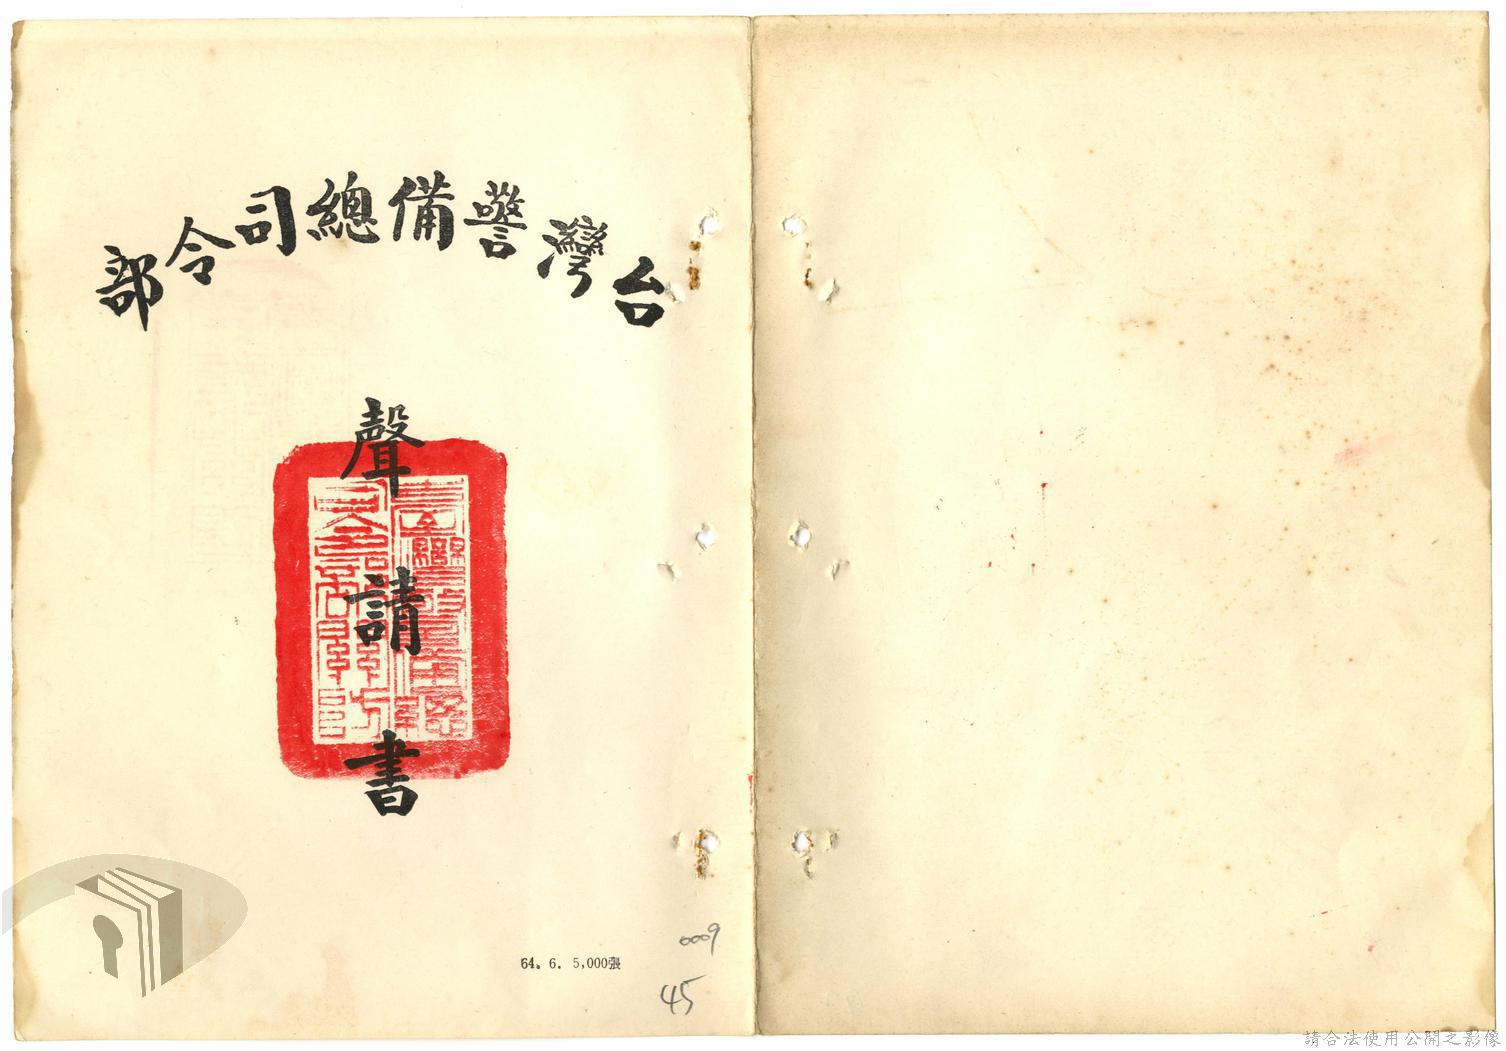 台灣警備總司令部
聲請書
64. 6. 5,000張
0009
45
請合法使用公開之影像